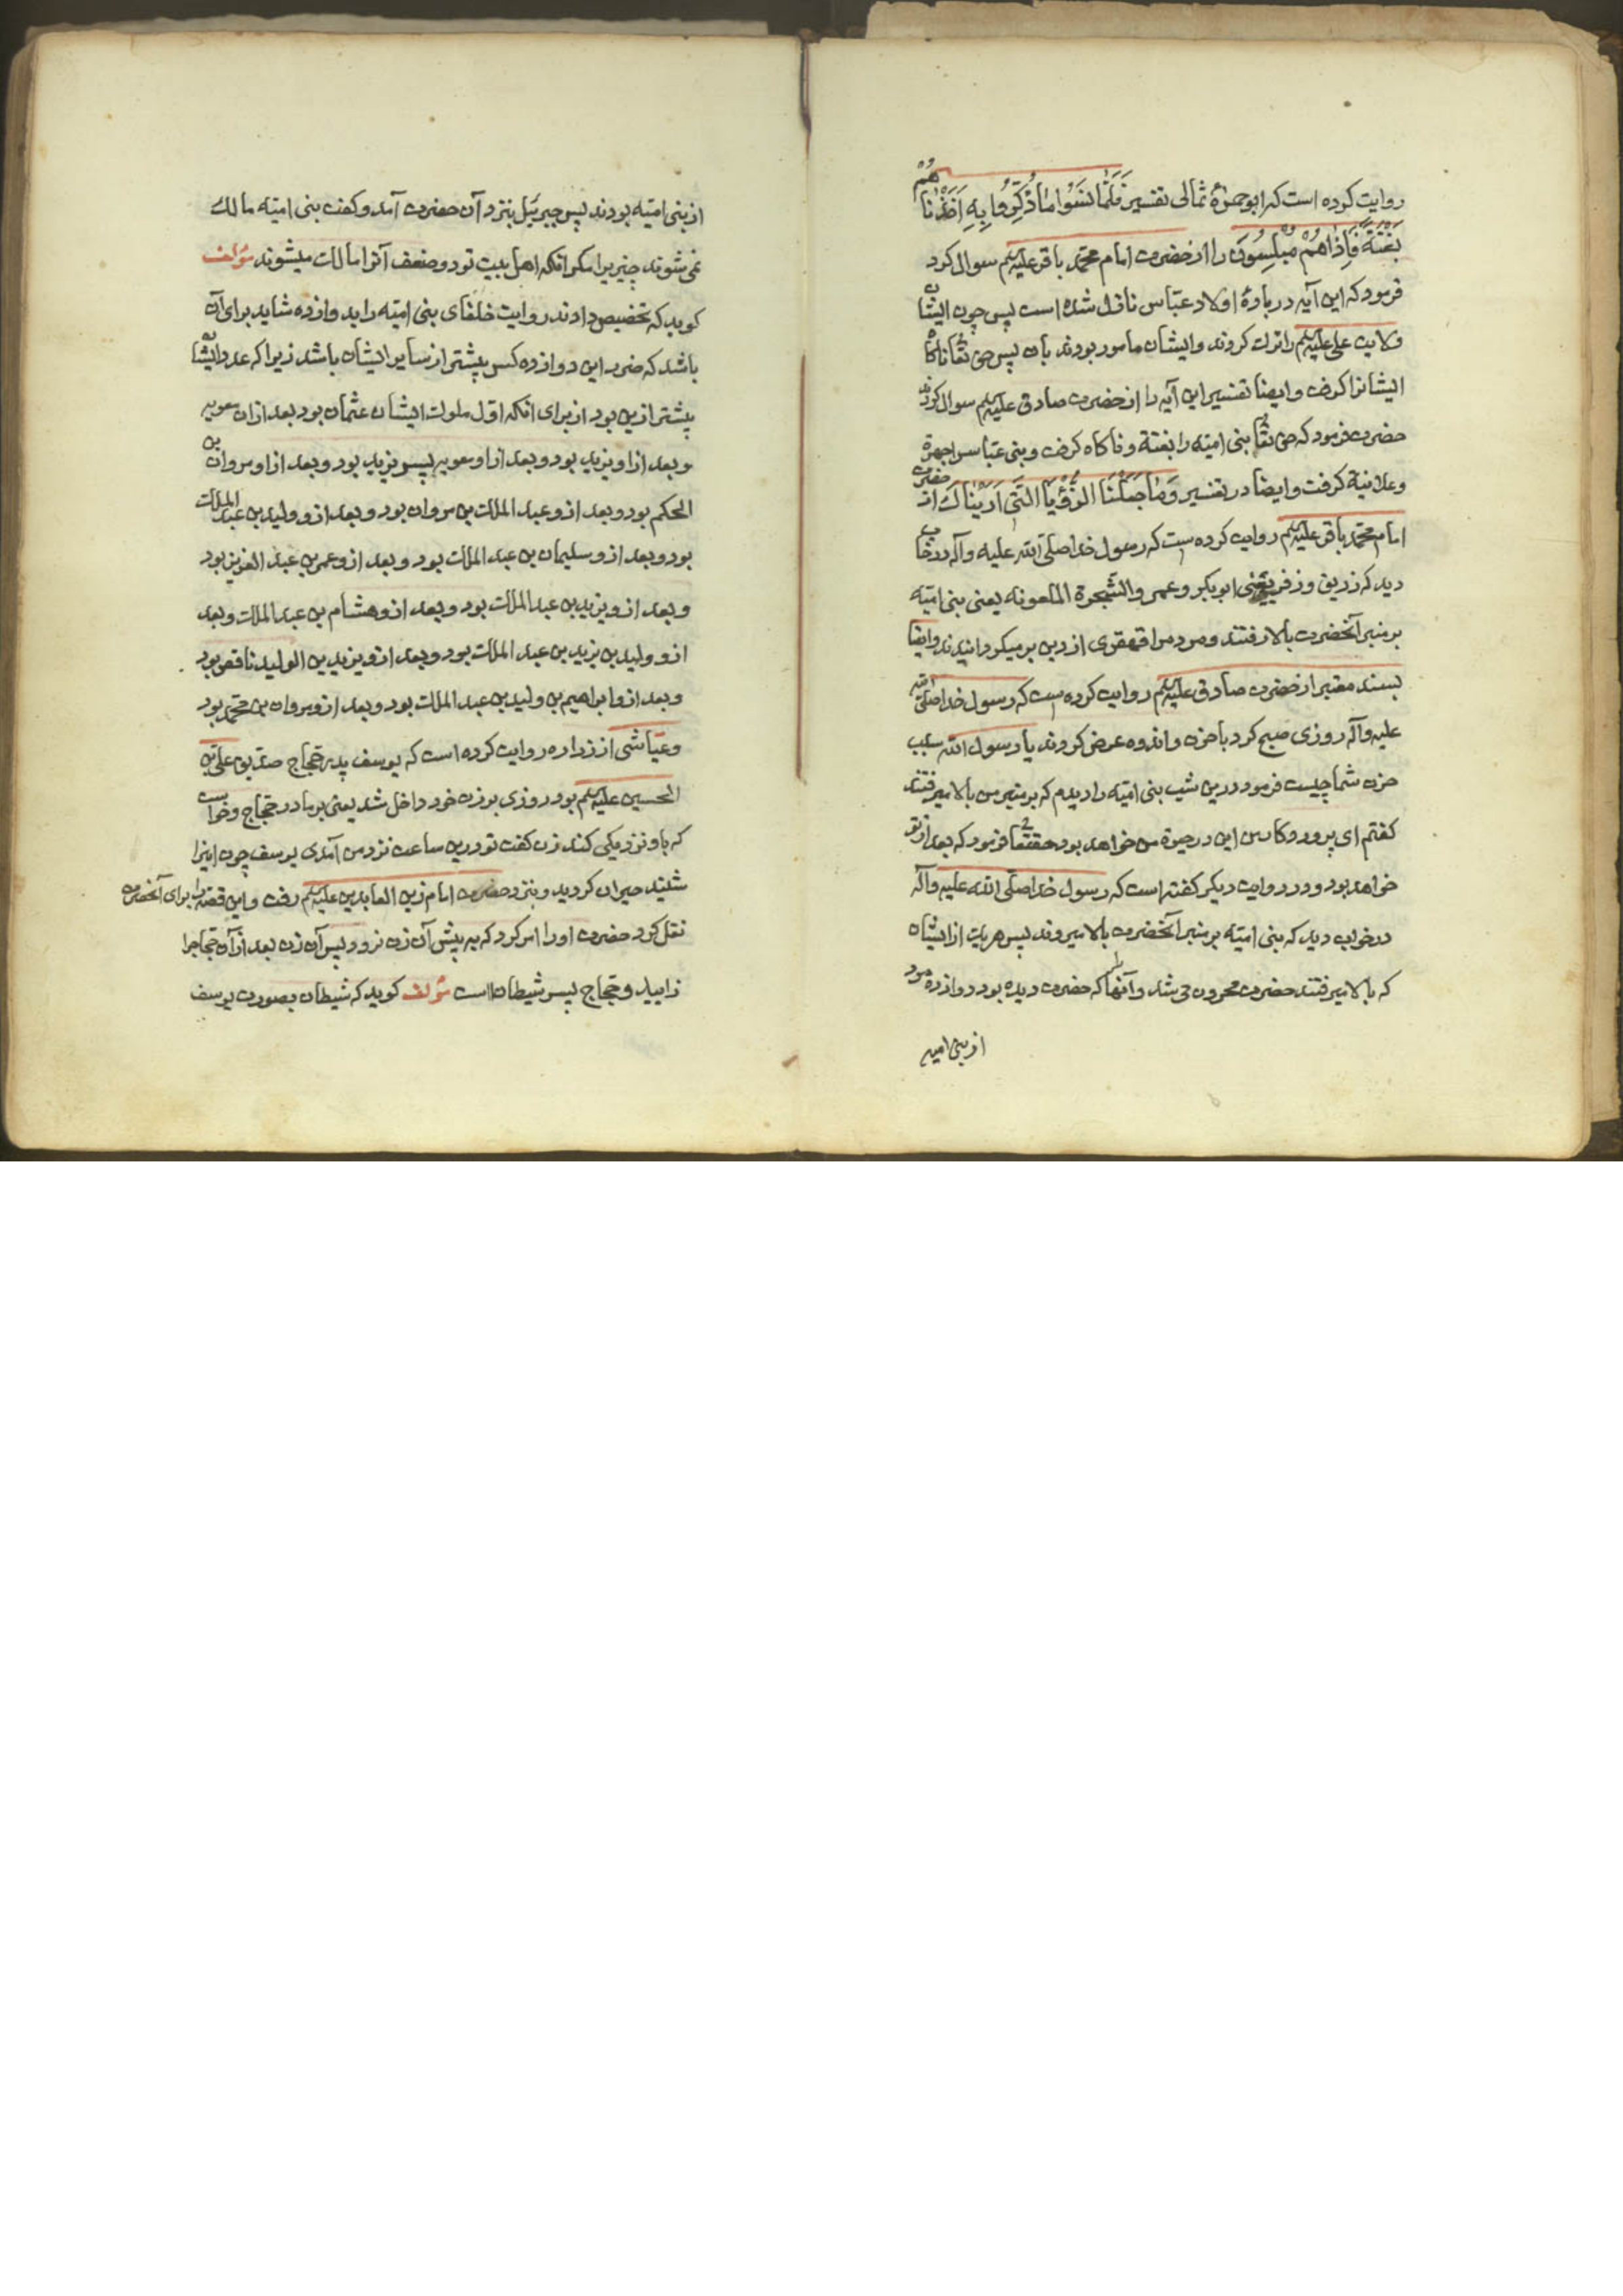 روایت کرده است که ابو حمزهٔ ثمالی تفسیر فَلَمّا نَسُوا مَا ذُكِّرُوا بِهِ اَخَذْنَاهُمْ
بَغْتَةً فَاِذَا هُمْ مُبْلِسُونَ را از حضرت امام محمّد باقر علیه السلم سوال کرد
فرمود که این آیه دربارهٔ اولاد عبّاس نازل شده است پس چون ایشان
ولایت علی علیه السلم را ترک کردند و ایشان مامور بودند بان پس حق تعا ناکاه
ایشانرا کرفت و ایضا تفسیر این آیه را از حضرت صادق علیه السلم سوال کردند
حضرت فرمود که حق تعا بنی امیّه را بغتة و ناکاه کرفت و بنی عبّاس را جهرة
و علانیة کرفت و ایضا در تفسیر وَمَا جَعَلْنَا الرُّؤْیَا الَّتِی اَرَیْنَاكَ از حضرت
امام محمّد باقر علیه السلم روایت کرده است که رسول خدا صلّی الله علیه وآله در خواب
دید که زریق و زفر یعنی ابوبکر و عمر والشّجرة الملعونه یعنی بنی امیّه
بر منبر آنحضرت بالا رفتند و مردم را قهقری از دین بر میکردانیدند و ایضا
بسند معتبر از حضرت صادق علیه السلم روایت کرده است که رسول خدا صلّی الله
علیه وآله روزی صبح کرد با حزن و اندوه عرض کردند یا رسول الله سبب
حزن شما چیست فرمود درین شب بنی امیّه را دیدم که بر منبر من بالا میرفتند
کفتم ای پروردکار من این در حیوة من خواهد بود حقتعا فرمود که بعد از تو
خواهد بود و در روایت دیکر کفته است که رسول خدا صلّی الله علیه وآله
در خواب دید که بنی امیّه بر منبر آنحضرت بالا میروند پس هر یک از ایشان
که بالا میرفتند حضرت محزون می شد و آنها که حضرت دیده بود دوازده مرد
از بنی امیه
از بنی امیّه بودند پس جبرئیل بنزد آن حضرت آمد و کفت بنی امیّه مالک
نمی شوند چیزیرا مکر انکه اهل بیت تو دو ضعف آنرا مالک میشوند مؤلف
کوید که تخصیص دادند روایت خلفای بنی امیّه را بدوازده شاید برای آن
باشد که ضرر این دوازده کس بیشتر از سایر ایشان باشد زیرا که عدد ایشان
بیشتر ازین بود از برای انکه اوّل ملوک ایشان عثمان بود بعد ازان معویه
و بعد ازاو یزید بود و بعد ازاو معویه پسر یزید بود و بعد ازاو مروان بن
الحکم بود و بعد ازو عبد الملک بن مروان بود و بعد ازو ولید بن عبد الملک
بود و بعد ازو سلیمان بن عبد الملک بود و بعد ازو عمر بن عبد العزیز بود
و بعد ازو یزید بن عبد الملک بود و بعد ازو هشام بن عبد الملک و بعد
ازو ولید بن یزید بن عبد الملک بود و بعد ازو یزید بن الولید ناقص بود
و بعد ازو ابراهیم بن ولید بن عبد الملک بود و بعد ازو مروان بن محمّد بود
و عیّاشی از زراره روایت کرده است که یوسف پدر حجّاج صدیق علی بن
الحسین علیه السلم بود روزی بر زن خود داخل شد یعنی بر مادر حجّاج و خواست
که باو نزدیکی کند زن کفت تو درین ساعت نزد من آمدی یوسف چون اینرا
شنید حیران کردید و بنزد حضرت امام زین العابدین علیه السلم رفت و این قصّه را برای آنحضرت
نقل کرد حضرت اورا امر کرد که به پیش آن زن نرود پس آن زن بعد ازآن حجّاجرا
زایید و حجّاج پسر شیطان است مؤلف کوید که شیطان بصورت یوسف